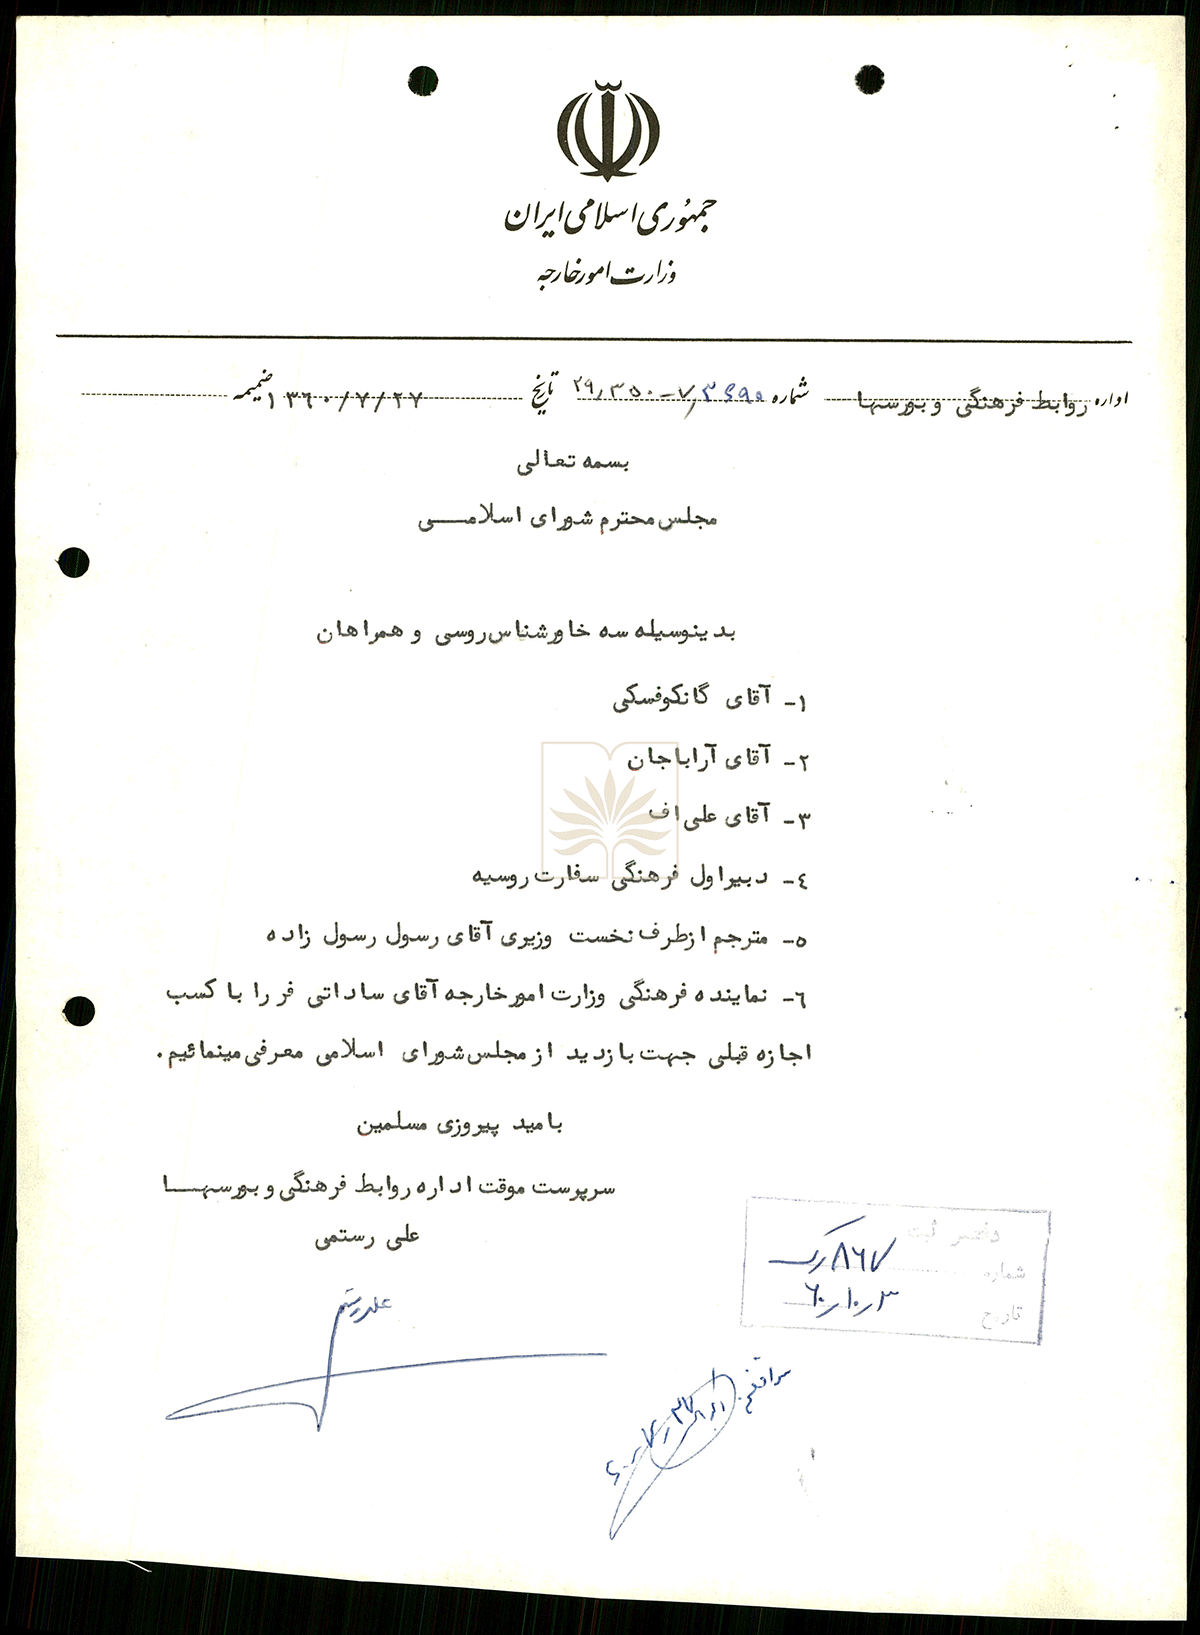 جمهوری اسلامی ایران
وزارت امور خارجه
اداره روابط فرهنگی و بورسها شماره ۲۹،۳۵۰-۷،۳۶۹۵ تاریخ ۱۳٦۰/۷/۲۷ ضمیمه
بسمه تعالی
مجلس محترم شورای اسلامی
بدینوسیله سه خاورشناس روسی و همراهان
۱- آقای گانکوفسکی
۲- آقای آراباجان
۳- آقای علی اف
٤- دبیر اول فرهنگی سفارت روسیه
۵- مترجم از طرف نخست وزیری آقای رسول رسول زاده
٦- نماینده فرهنگی وزارت امور خارجه آقای ساداتی فر را با کسب
اجازه قبلی جهت بازدید از مجلس شورای اسلامی معرفی مینمائیم.
بامید پیروزی مسلمین
سرپرست موقت اداره روابط فرهنگی و بورسها
علی رستمی
دفتر ثبت
شماره ۸٦۷
تاریخ ٦۰/۱۰/۳
علی رستمی
موافقم